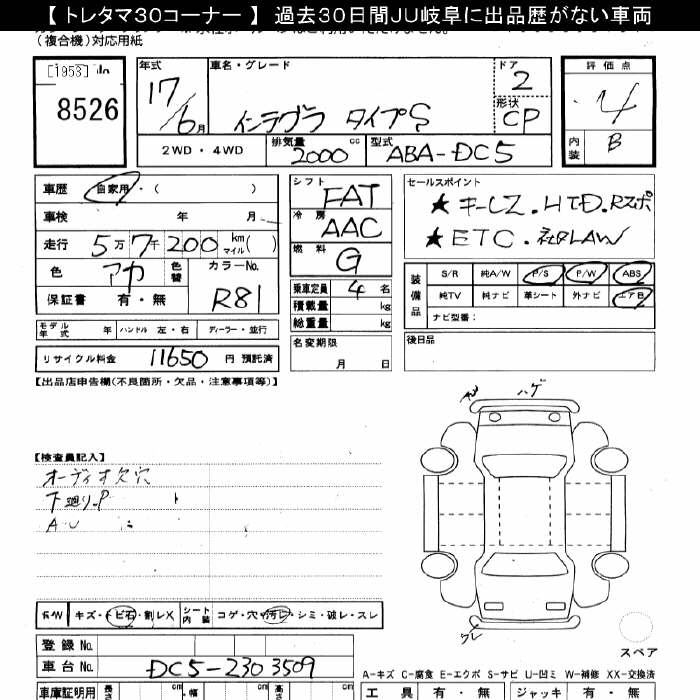 【 トレタマ30コーナー 】 過去30日間JU岐阜に出品歴がない車両
(複合機)対応用紙
8526
年式 17/6月
車名・グレード インテグラ タイプS
ドア 2
形状 CP
評価点 4
内装 B
2WD・4WD
排気量 2000 cc
型式 ABA-DC5
車歴 自家用・( )
車検 年 月
走行 5万7千200 km マイル( )
色 アカ 色替 カラーNo. R81
保証書 有・無
モデル年式 年 ハンドル 左・右 ディーラー・並行
リサイクル料金 11650 円 預託済
シフト FAT
冷房 AAC
燃料 G
乗車定員 4 名
積載量 kg
総重量 kg
名変期限 月 日
セールスポイント
★ キーLZ.HTD.Rスポ
★ ETC.社外AW
装備品
S/R 純A/W P/S P/W ABS
純TV 純ナビ 革シート 外ナビ エアB
ナビ型番:
後日品
【出品店申告欄(不良箇所・欠品・注意事項等)】
【検査員記入】
オーディオ欠穴
下廻りP
AU
ハゲ
F/W キズ・トビ石・割レX シート内装 コゲ・穴・汚レ・シミ・破レ・スレ
スペア
登録 No.
車台 No. DC5-2303509
A-キズ C-腐食 E-エクボ S-サビ U-凹ミ W-補修 XX-交換済
車庫証明用 長さ cm 幅 cm 高さ cm
工具 有・無 ジャッキ 有・無